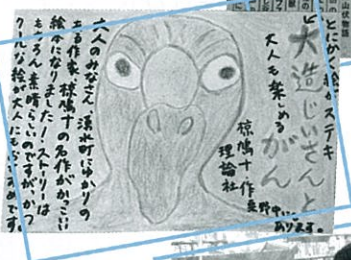 山伏物語
とにかく絵がステキ
大造じいさんと
がん
大人も楽しめる
椋鳩十 作
理論社
野中にあります。
大人のみなさん 湧水町にゆかりの
ある作家、椋鳩十の名作がかっこいい
絵本になりました！ストーリーは
もちろん 素晴らしいのですが、かつ
クールな絵が大人にもおすすめです。